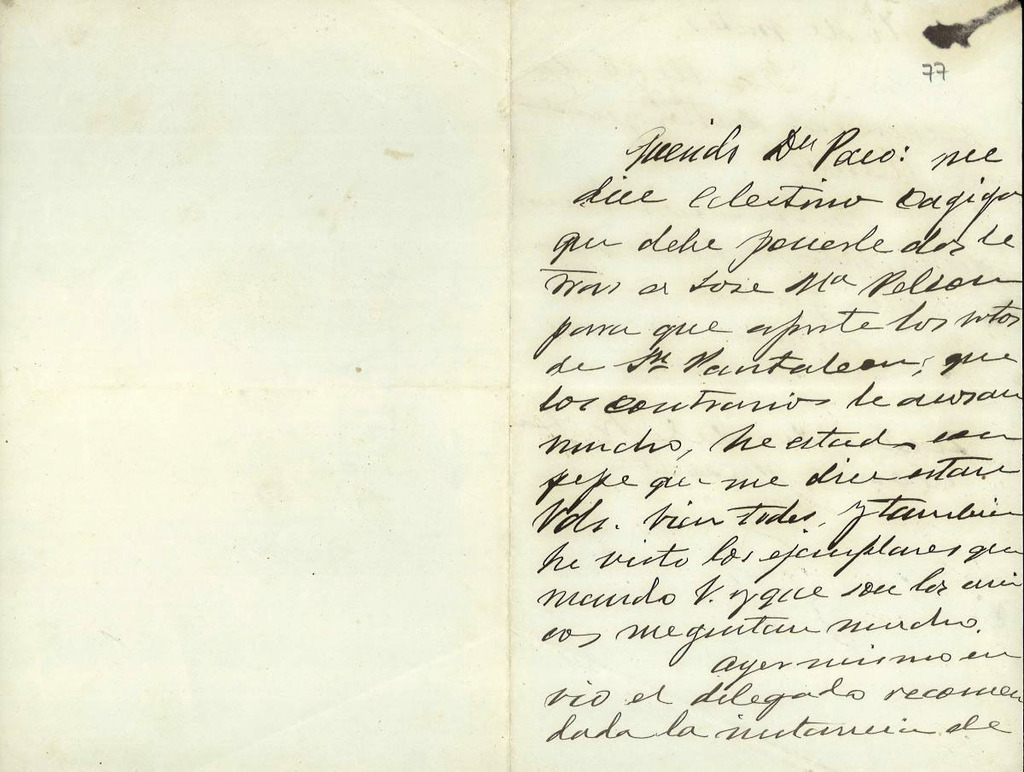 77
Querido Dn Paco: me
dice Celestino Cagiga
que debe ponerle dos le
tras a Jose Mª
para que aporte los votos
de Sn Pantaleon, que
los contrarios le
mucho, he estado con
pepe que me dice estan
Vds. bien todos, y tambien
he visto los ejemplares que
mando V. y que son los uni
cos me gustan mucho.
Ayer mismo en
vio el delegado recomen
dada la instancia de